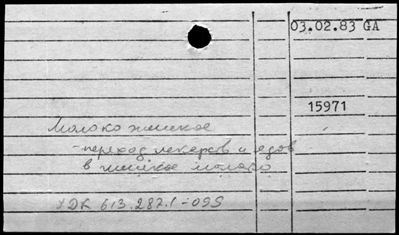 03.02.83 GA
15971
Молоко женское
-переход лекарств и ядов
в женское молоко
УДК 613.287.1-095